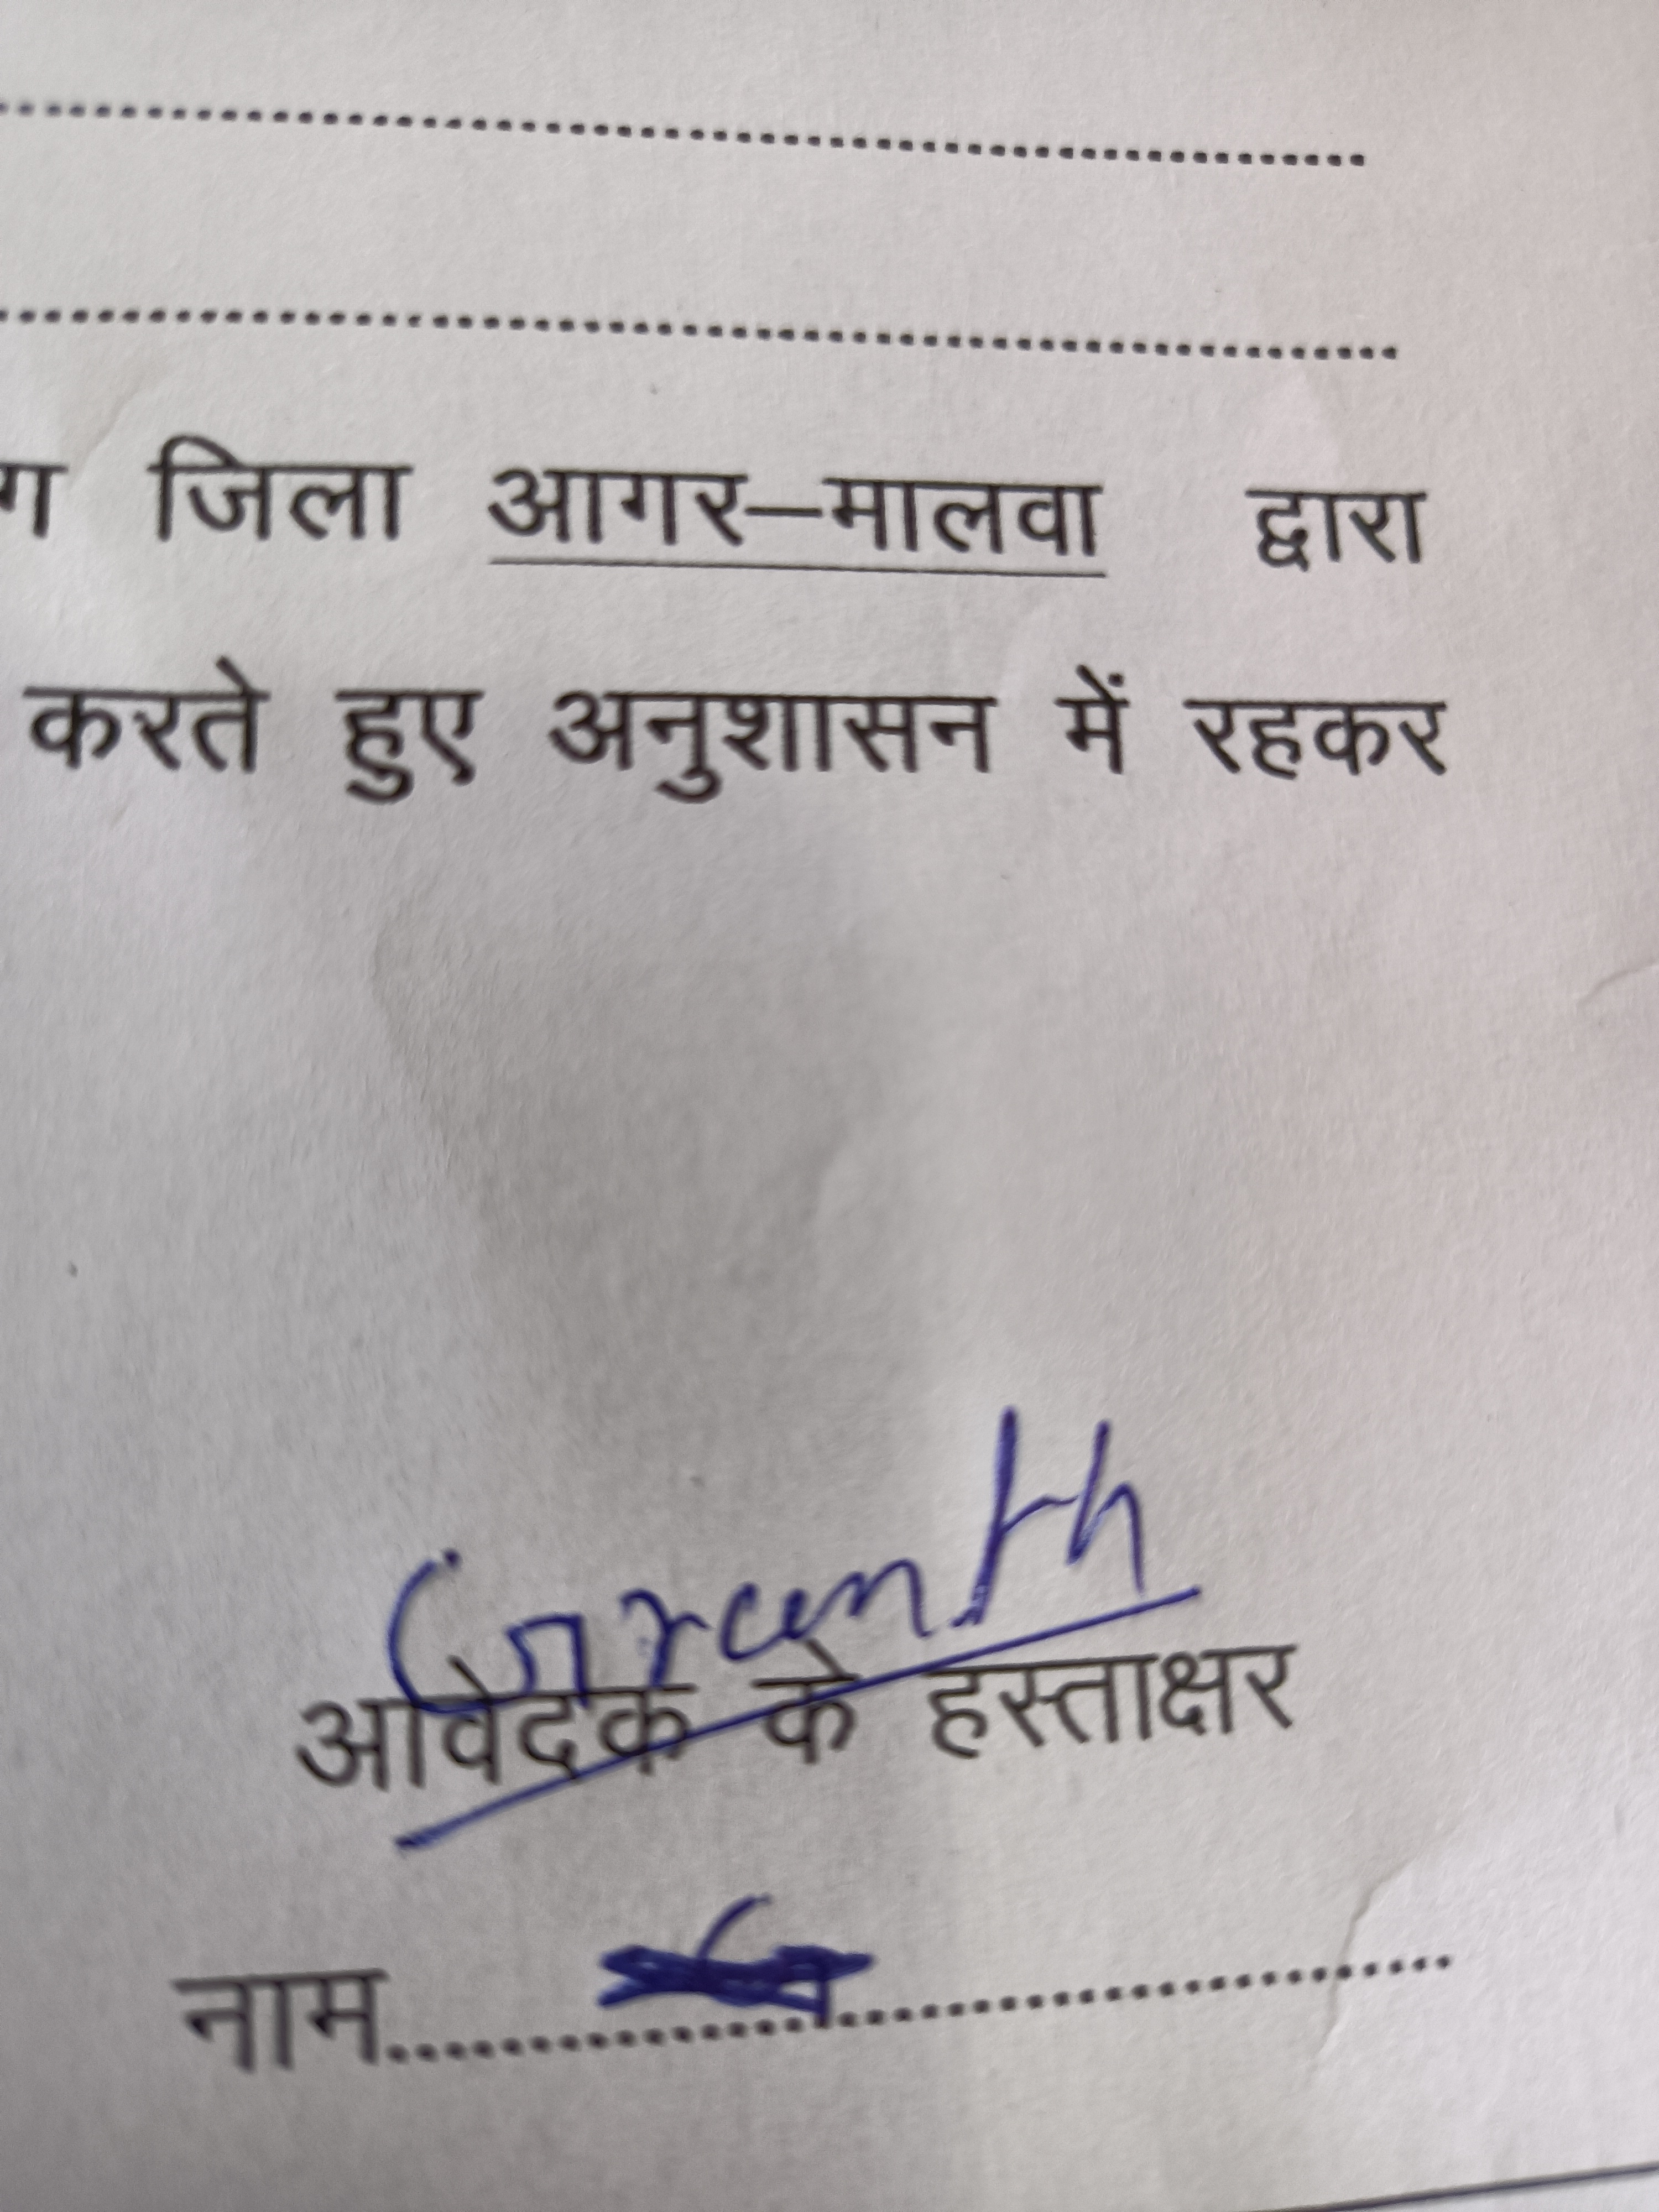 ........................................................................
........................................................................
ग जिला आगर–मालवा द्वारा
करते हुए अनुशासन में रहकर
Granth
आवेदक के हस्ताक्षर
नाम........................................